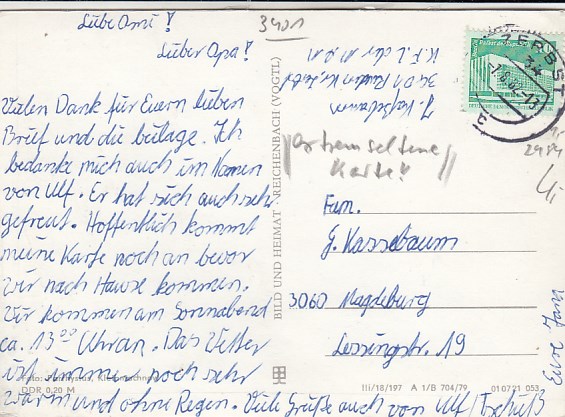 Liebe Omi!
Lieber Opa!
Vielen Dank für Euern lieben
Brief und die beilage. Ich
bedanke mich auch im Namen
von Ulf. Er hat sich auch sehr
gefreut. Hoffentlich kommt
meine Karte noch an bevor
wir nach Hause kommen.
Wir kommen am Sonnabend
ca. 13⁰⁰ Uhr an. Das Wetter
ist immer noch sehr
warm und ohne Regen. Viele Grüße auch von Ulf/Tschüß
Eure
DDR 0,20 M
BILD UND HEIMAT REICHENBACH (VOGTL)
III/18/197 A 1/B 704/79 010721 053
3401
J. Kassebaum
3401
extrem seltene
Karte!!
ZERBST
34
Fam.
G. Kassebaum
3060 Magdeburg
Lessingstr. 19